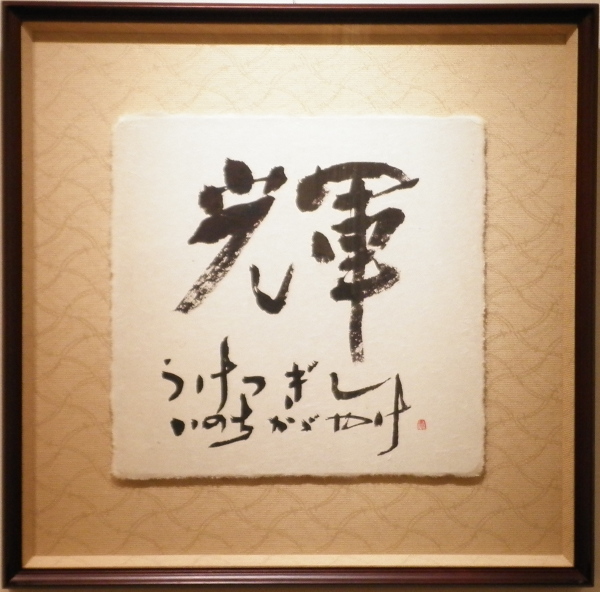 輝
うけつぎし
いのちかがやけ